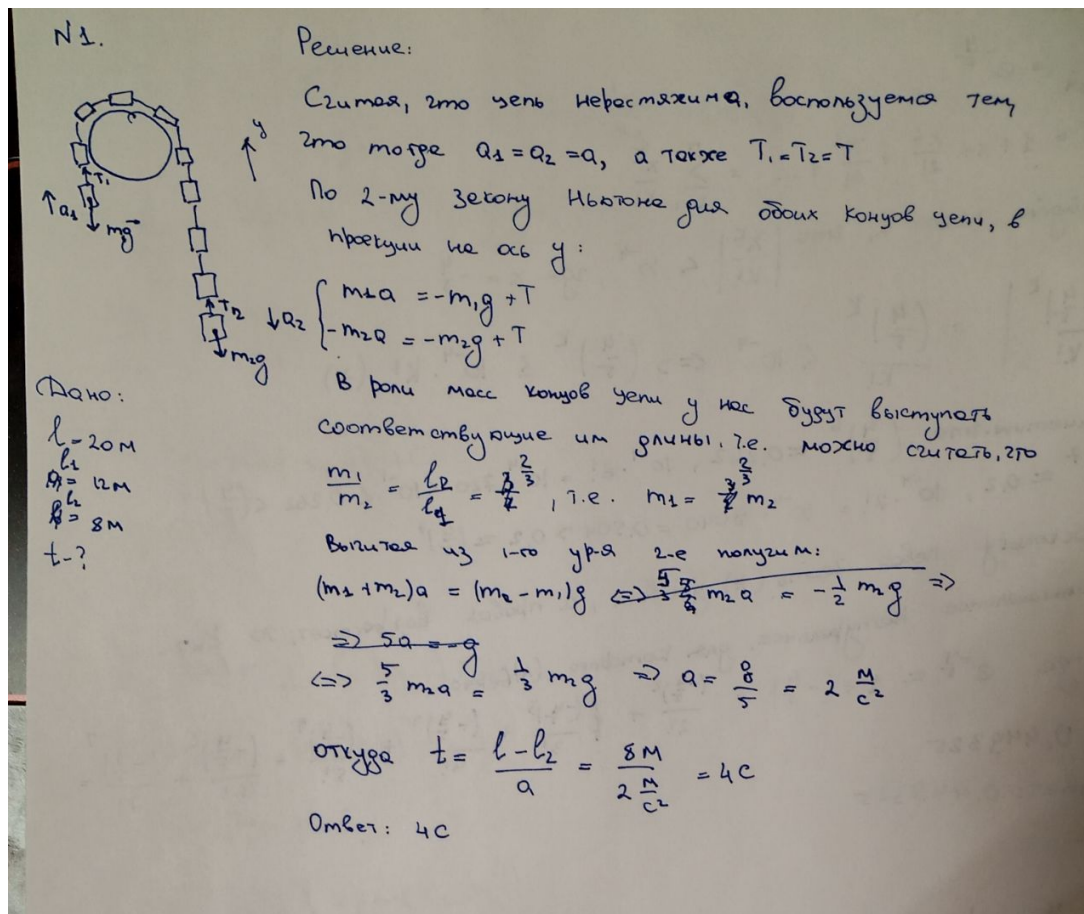 N1.
Решение:
Считая, что цепь нерастяжима, воспользуемся тем,
что тогда a₁ = a₂ = a, а также T₁ = T₂ = T
По 2-му закону Ньютона для обоих концов цепи, в
проекции на ось y:
y
T₁
↑a₁
mg⃗
T₂
↓a₂
m₂g
{ m₁a = -m₁g + T
-m₂a = -m₂g + T
В роли масс концов цепи у нас будут выступать
соответствующие им длины, т.е. можно считать, что
Дано:
l = 20 м
l₁ = 12 м
l₂ = 8 м
t - ?
m₁/m₂ = l₂/l₁ = 2/3, т.е. m₁ = 2/3 m₂
Вычитая из 1-го ур-я 2-е получим:
(m₁ + m₂)a = (m₂ - m₁)g <=> m₂a = -1/2 m₂g =>
=> 5a = -g
<=> 5/3 m₂a = 1/3 m₂g => a = g/5 = 2 м/с²
откуда t = (l - l₂)/a = 8м/(2 м/с²) = 4с
Ответ: 4с